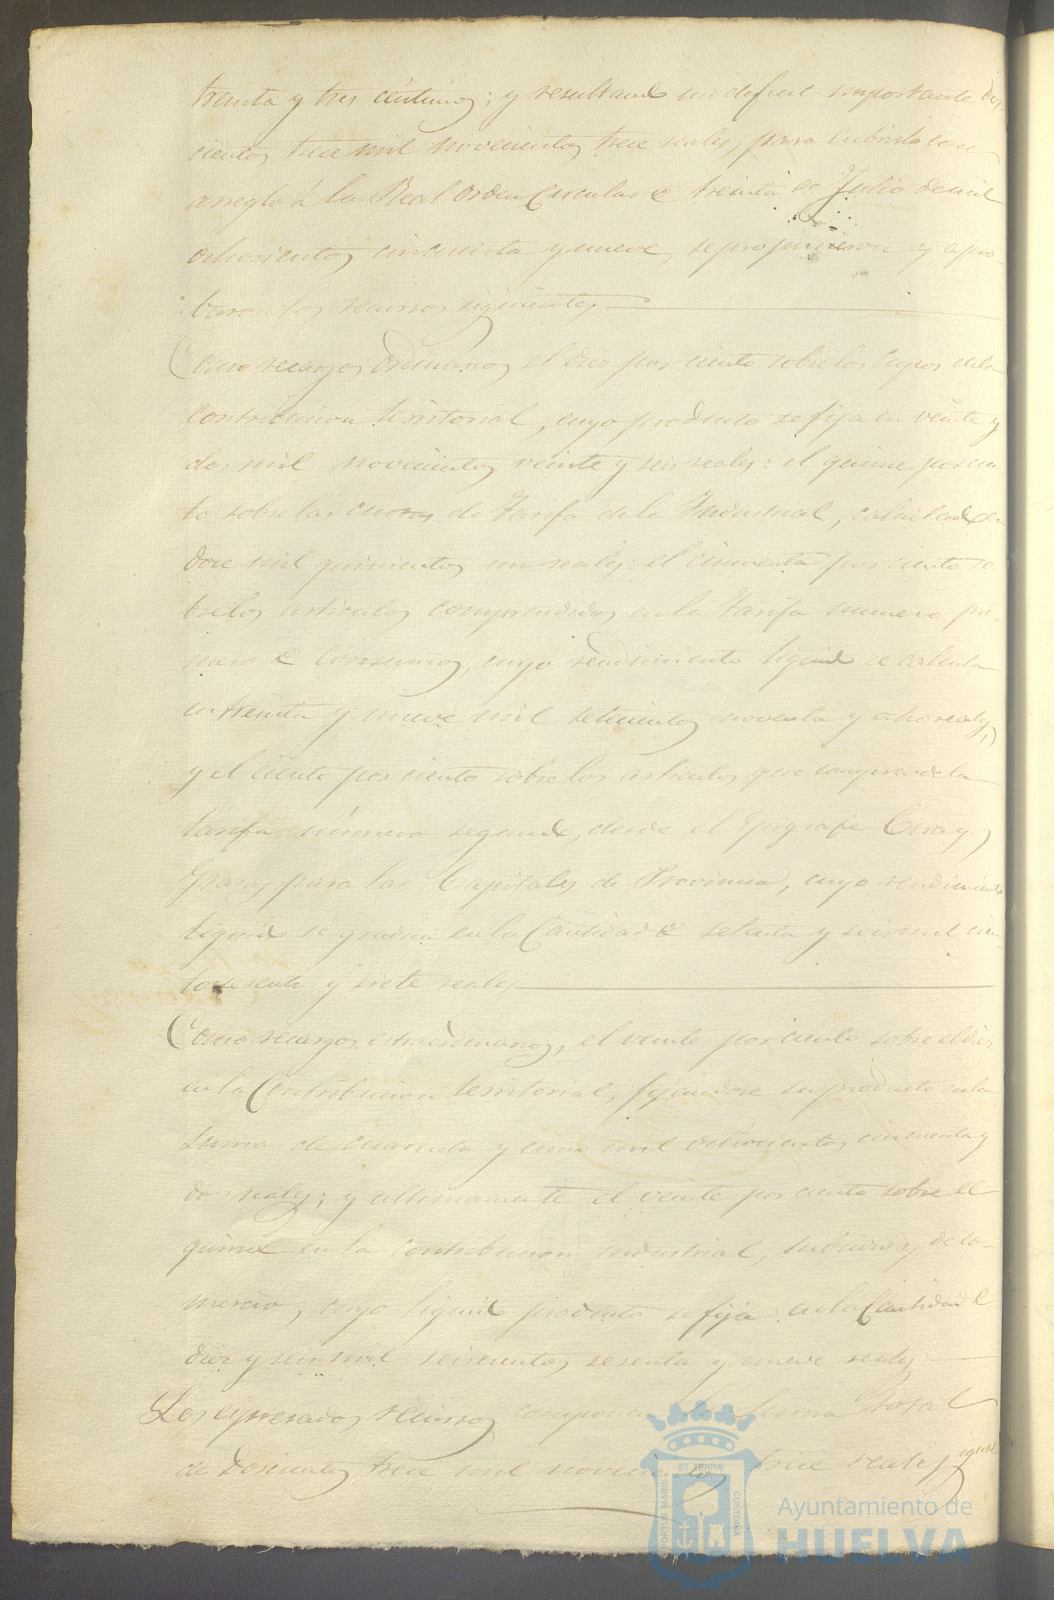 treinta y tres céntimos; y resultando un deficit importante dos
cientos trece mil novecientos trece reales, para cubrirlo con
arreglo á la Real Orden Circular de treinta de Julio de mil
ochocientos cincuenta y nueve, se propusieron y apro-
baron los recursos siguientes
Como recargos ordinarios el diez por ciento sobre los cupos de la
contribucion territorial, cuyo producto se fija en veinte y
dos mil novecientos veinte y seis reales: el quince por cien
to sobre las cuotas de Tarifa de la Industrial, calculado en
doce mil quinientos un reales: el cincuenta por ciento so-
bre los articulos comprendidos en la Tarifa numero pri-
mero de Consumos, cuyo rendimiento liquido se calcula
en treinta y nueve mil setecientos noventa y ocho reales,
y el ciento por ciento sobre los articulos que comprende la
tarifa número segundo, desde el Epigrafe Cera y
Grasas para las Capitales de Provincia, cuyo rendimiento
liquido se gradua en la Cantidad de setenta y seis mil cien-
to sesenta y siete reales
Como recargos extraordinarios, el veinte por ciento sobre el diez
en la Contribucion territorial, fijandose su producto en la
suma de cuarenta y cinco mil ochocientos cincuenta y
dos reales; y ultimamente el veinte por ciento sobre el
quince en la contribucion industrial, subsidio y de co-
mercio, cuyo liquido producto se fija en la Cantidad de
diez y seis mil seiscientos sesenta y nueve reales
Los expresados recursos componen la Suma total
de doscientos trece mil novecientos trece reales, igual
PORTUS MARIS ET TERRÆ CUSTODIA
Ayuntamiento de
HUELVA